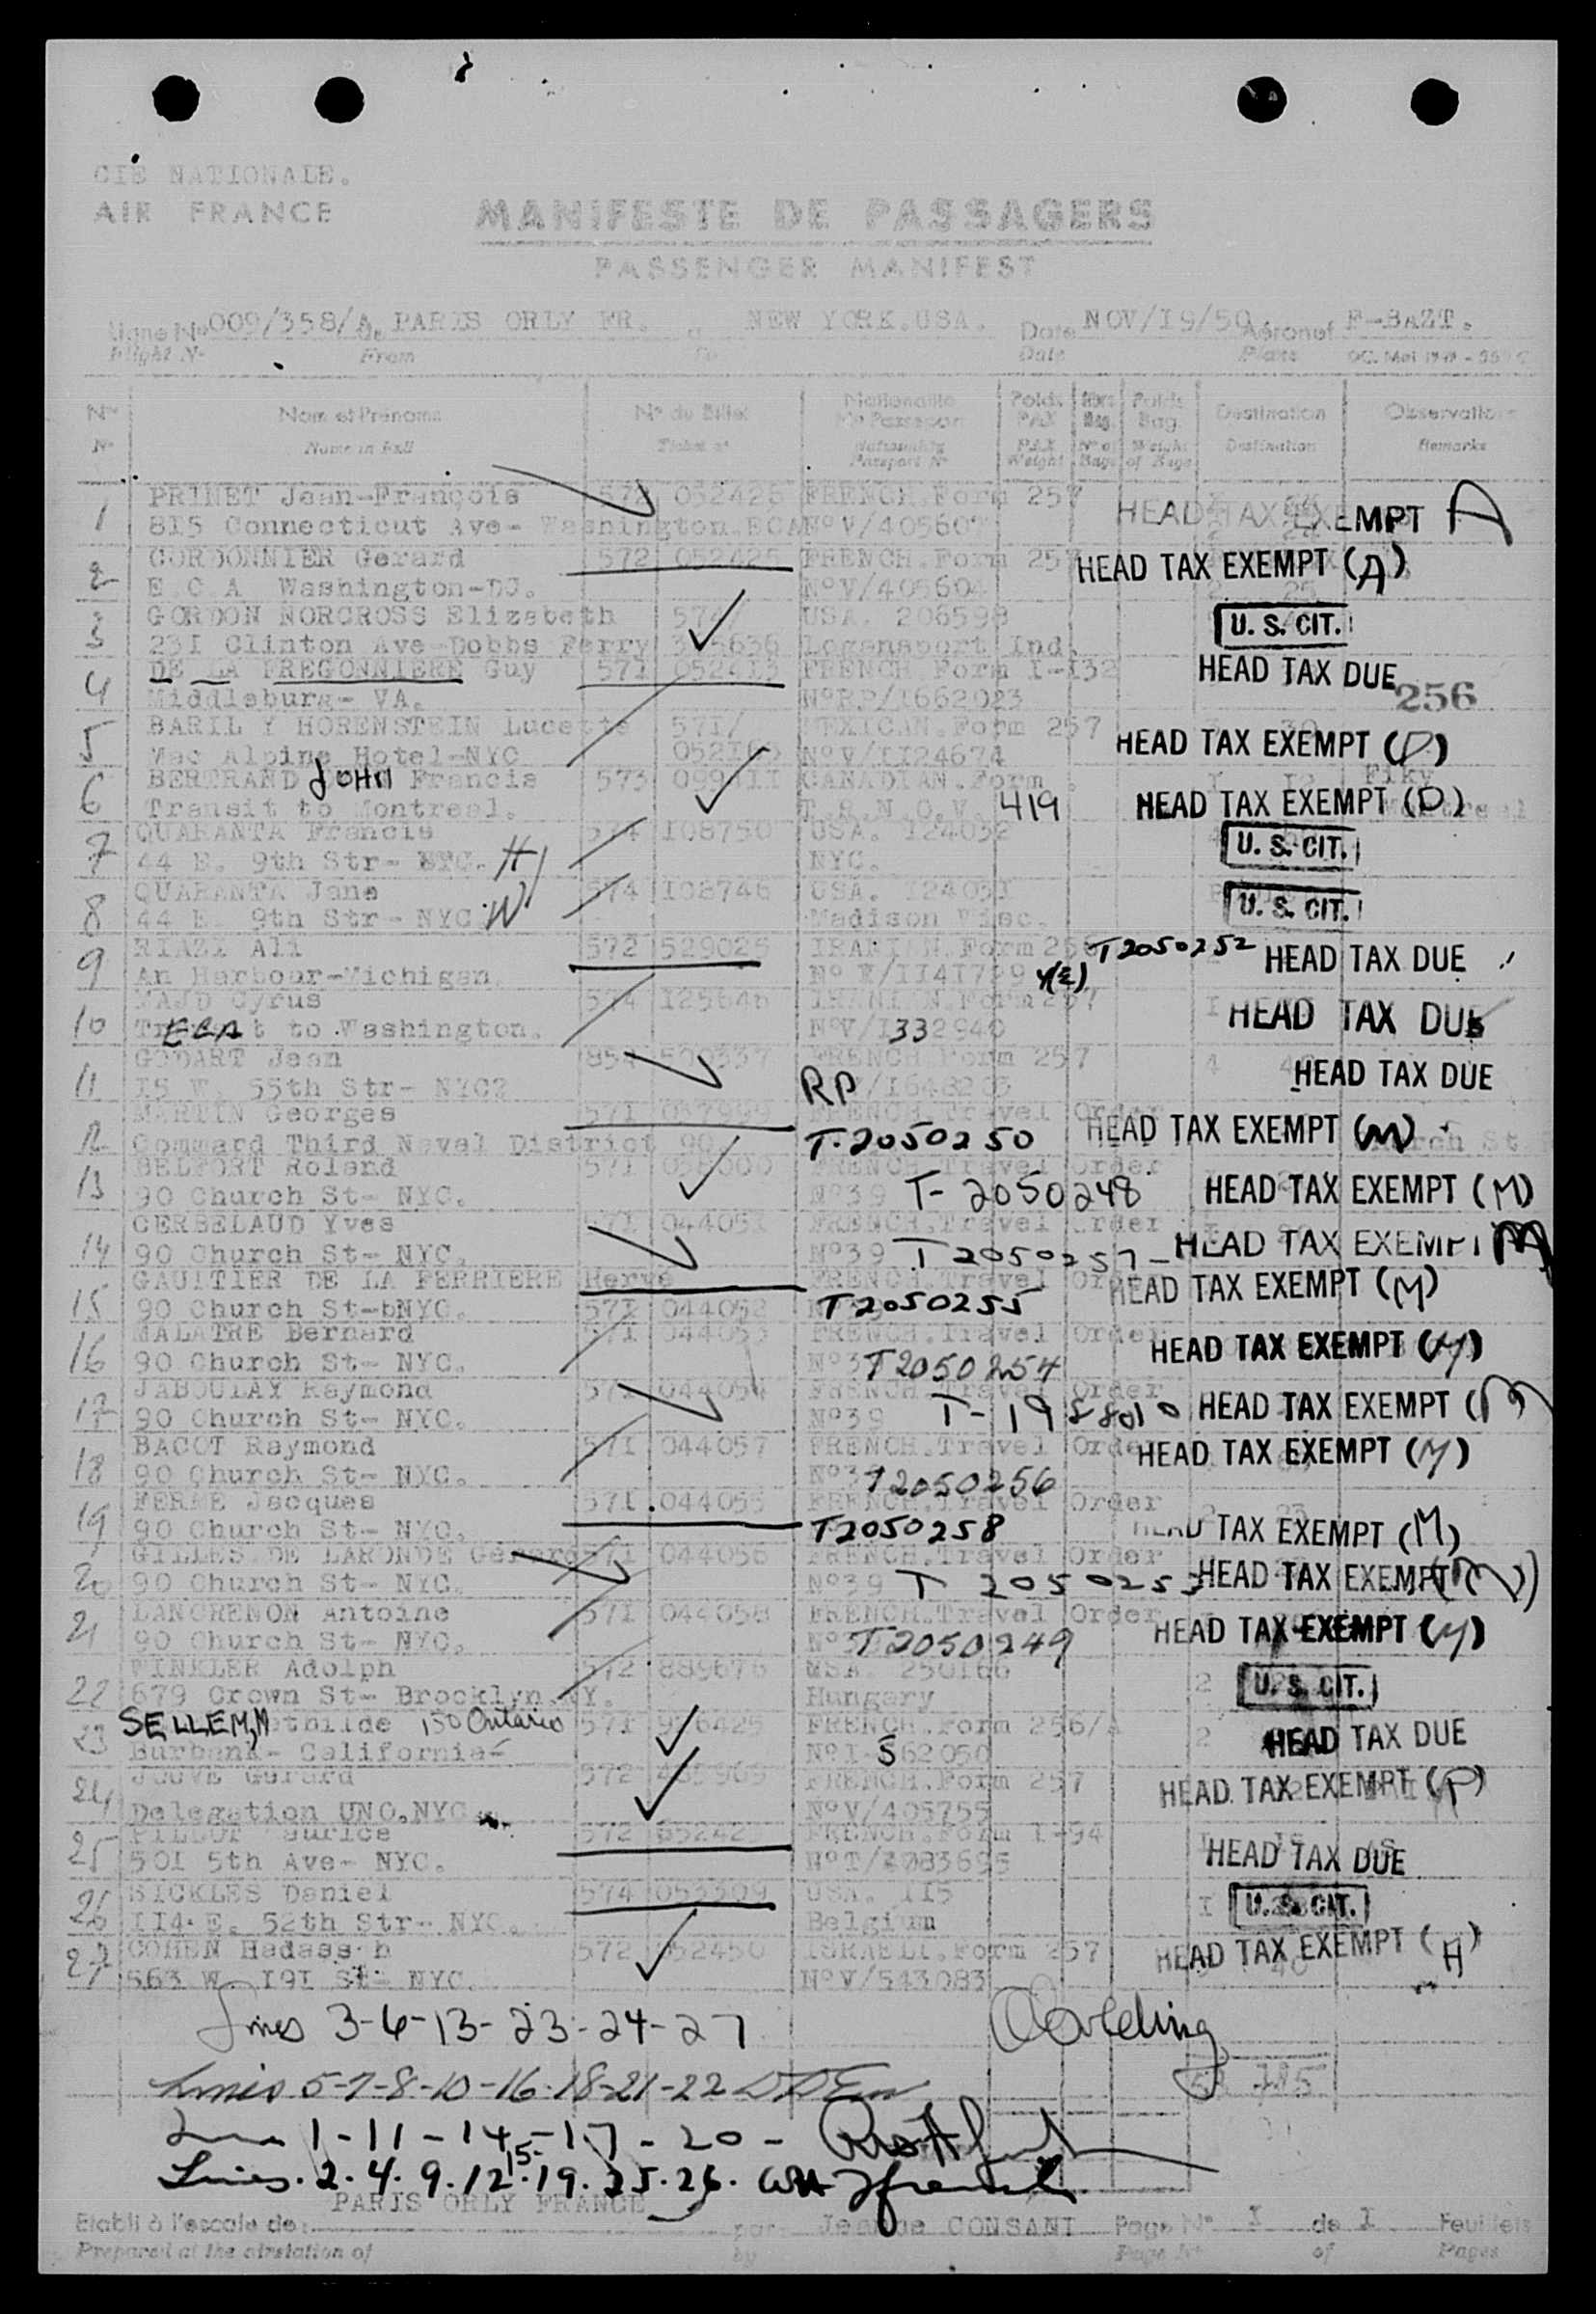 CIE NATIONALE.
AIR FRANCE
MANIFESTE DE PASSAGERS
PASSENGER MANIFEST
Ligne No 009/358/A de PARIS ORLY FR. à NEW YORK.USA. Date NOV/I9/50 Aéronef F-BAZT.
Flight No From To Date Plane
No Nom et Prénoms No du Billet Nationalité No Passeport Poids PAX Nbre Bag. Poids Bag. Destination Observations
No Name in full Ticket Nr Nationality Passport Nr PAX Weight Nr of Bags Weight of Bags Destination Remarks
1 PRINET Jean-François 572 052426 FRENCH.Form 257 HEAD TAX EXEMPT A
8I5 Connecticut Ave- Washington.ECA No V/405607
2 CORDONNIER Gerard 572 052425 FRENCH.Form 257 HEAD TAX EXEMPT (A)
E C A Washington-DC. No V/405604
3 GORDON NORCROSS Elizabeth 574/ USA. 206598 U.S. CIT.
23I Clinton Ave-Dobbs Ferry Logansport Ind.
4 DE LA FREGONNIERE Guy 571 0524I3 FRENCH Form I-I32 HEAD TAX DUE
Middleburg- VA. No RP/I662023 256
5 BARIL Y HORENSTEIN Lucette 57I/ MEXICAN.Form 257 HEAD TAX EXEMPT (P)
Mac Alpine Hotel-NYC No V/II24674
6 BERTRAND JOHN Francis 573 CANADIAN.Form
Transit to Montreal. T.R.N.O.V. 419 HEAD TAX EXEMPT (D) Montreal
7 QUARANTA Francis 574 I08750 USA. I24032 U.S. CIT.
44 E. 9th Str- NYC. H NYC.
8 QUARANTA Jane 574 I08746 USA. I2403I U.S. CIT.
44 E. 9th Str- NYC W Madison Wisc.
9 RIAZI Ali 572 529025 IRANIAN.Form 256 T2050252 HEAD TAX DUE
An Harbour-Michigan. 4(E)
10 MAJD Cyrus 574 I25646 IRANIAN.Form 257 HEAD TAX DUE
ECA to Washington. No V/I332940
11 GODART Jean FRENCH Form 257 HEAD TAX DUE
I5 W. 55th Str- NYC? RP /I648203
12 MARTIN Georges 57I 037999 FRENCH.Travel Order HEAD TAX EXEMPT (M)
Command Third Naval District 90 T-2050250 Church St
13 BELFORT Roland 57I FRENCH.Travel Order
90 Church St- NYC. No39 T-2050248 HEAD TAX EXEMPT (M)
14 GERBELAUD Yves 57I 04405I FRENCH.Travel Order
90 Church St- NYC. No39 T 2050257 HEAD TAX EXEMPT M
15 GAULTIER DE LA FERRIERE Hervé FRENCH.Travel Order HEAD TAX EXEMPT (M)
90 Church St-bNYC. 57I 044052 T2050255
16 MALATRE Bernard 57I 044053 FRENCH.Travel Order HEAD TAX EXEMPT (M)
90 Church St- NYC. T2050254
17 JABOULAY Raymond 57I 044054 FRENCH.Travel Order
90 Church St- NYC. No39 T-1988010 HEAD TAX EXEMPT (M)
18 BACOT Raymond 57I 044057 FRENCH.Travel Order HEAD TAX EXEMPT (M)
90 Church St- NYC. No39 T2050256
19 FERME Jacques 57I 044055 FRENCH.Travel Order
90 Church St- NYC. T2050258 HEAD TAX EXEMPT (M)
20 GILLES DE LARONDE Gérard 57I 044056 FRENCH.Travel Order
90 Church St- NYC. No39 T 2050253 HEAD TAX EXEMPT (M)
21 LANCRENON Antoine 57I 044058 FRENCH.Travel Order HEAD TAX EXEMPT (M)
90 Church St- NYC. T2050249
22 WINKLER Adolph 572 889676 USA. 250I66 2 U.S. CIT.
679 Crown St- Brooklyn.NY. Hungary
23 SELLEM,M athilde 150 Ontario 57I FRENCH.Form 256/A 2 HEAD TAX DUE
Burbank- California- No I-562050
24 JOUVE Gérard 572 FRENCH.Form 257 HEAD TAX EXEMPT (P)
Delegation UNO.NYC No V/405755
25 572 FRENCH.Form I-94
50I 5th Ave- NYC. No T/4083695 HEAD TAX DUE
26 SICKLES Daniel 574 053309 USA. II5 I U.S. CIT.
II4 E. 52th Str- NYC. Belgium
27 COHEN Hadassah 572 052450 ISRAELI.Form 257 HEAD TAX EXEMPT (H)
563 W I9I St- NYC. No V/543083
Lines 3-6-13-23-24-27
Lines 5-7-8-10-16-18-21-22
1-11-14-17-20-
Lines. 2.4.9.12.15.19.25.26.
PARIS ORLY FRANCE
Etabli à l'escale de: par Jeanne CONSANI Page No I de I Feuillets
Prepared at the airstation of by Page Nr of Pages